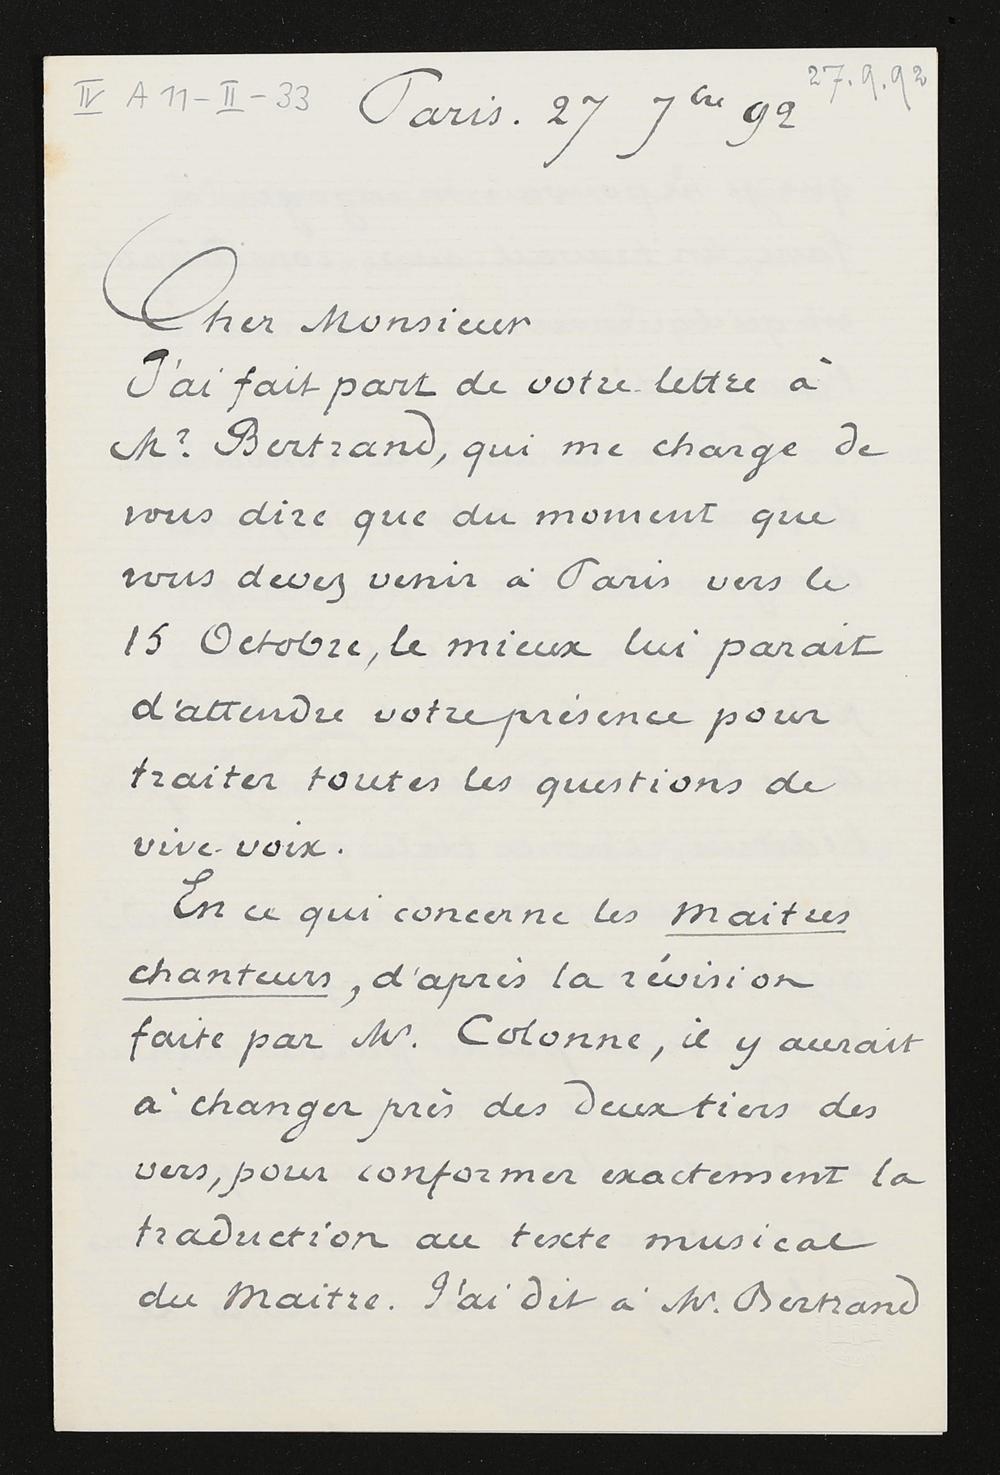 IV A 11-II-33
27.9.92
Paris. 27 7bre 92
Cher Monsieur
J'ai fait part de votre lettre à
Mr. Bertrand, qui me charge de
vous dire que du moment que
vous devez venir à Paris vers le
15 Octobre, le mieux lui parait
d'attendre votre présence pour
traiter toutes les questions de
vive voix.
En ce qui concerne les Maitres
chanteurs, d'après la révision
faite par Mr. Colonne, il y aurait
à changer près des deux tiers des
vers, pour conformer exactement la
traduction au texte musical
du Maitre. J'ai dit à Mr. Bertrand